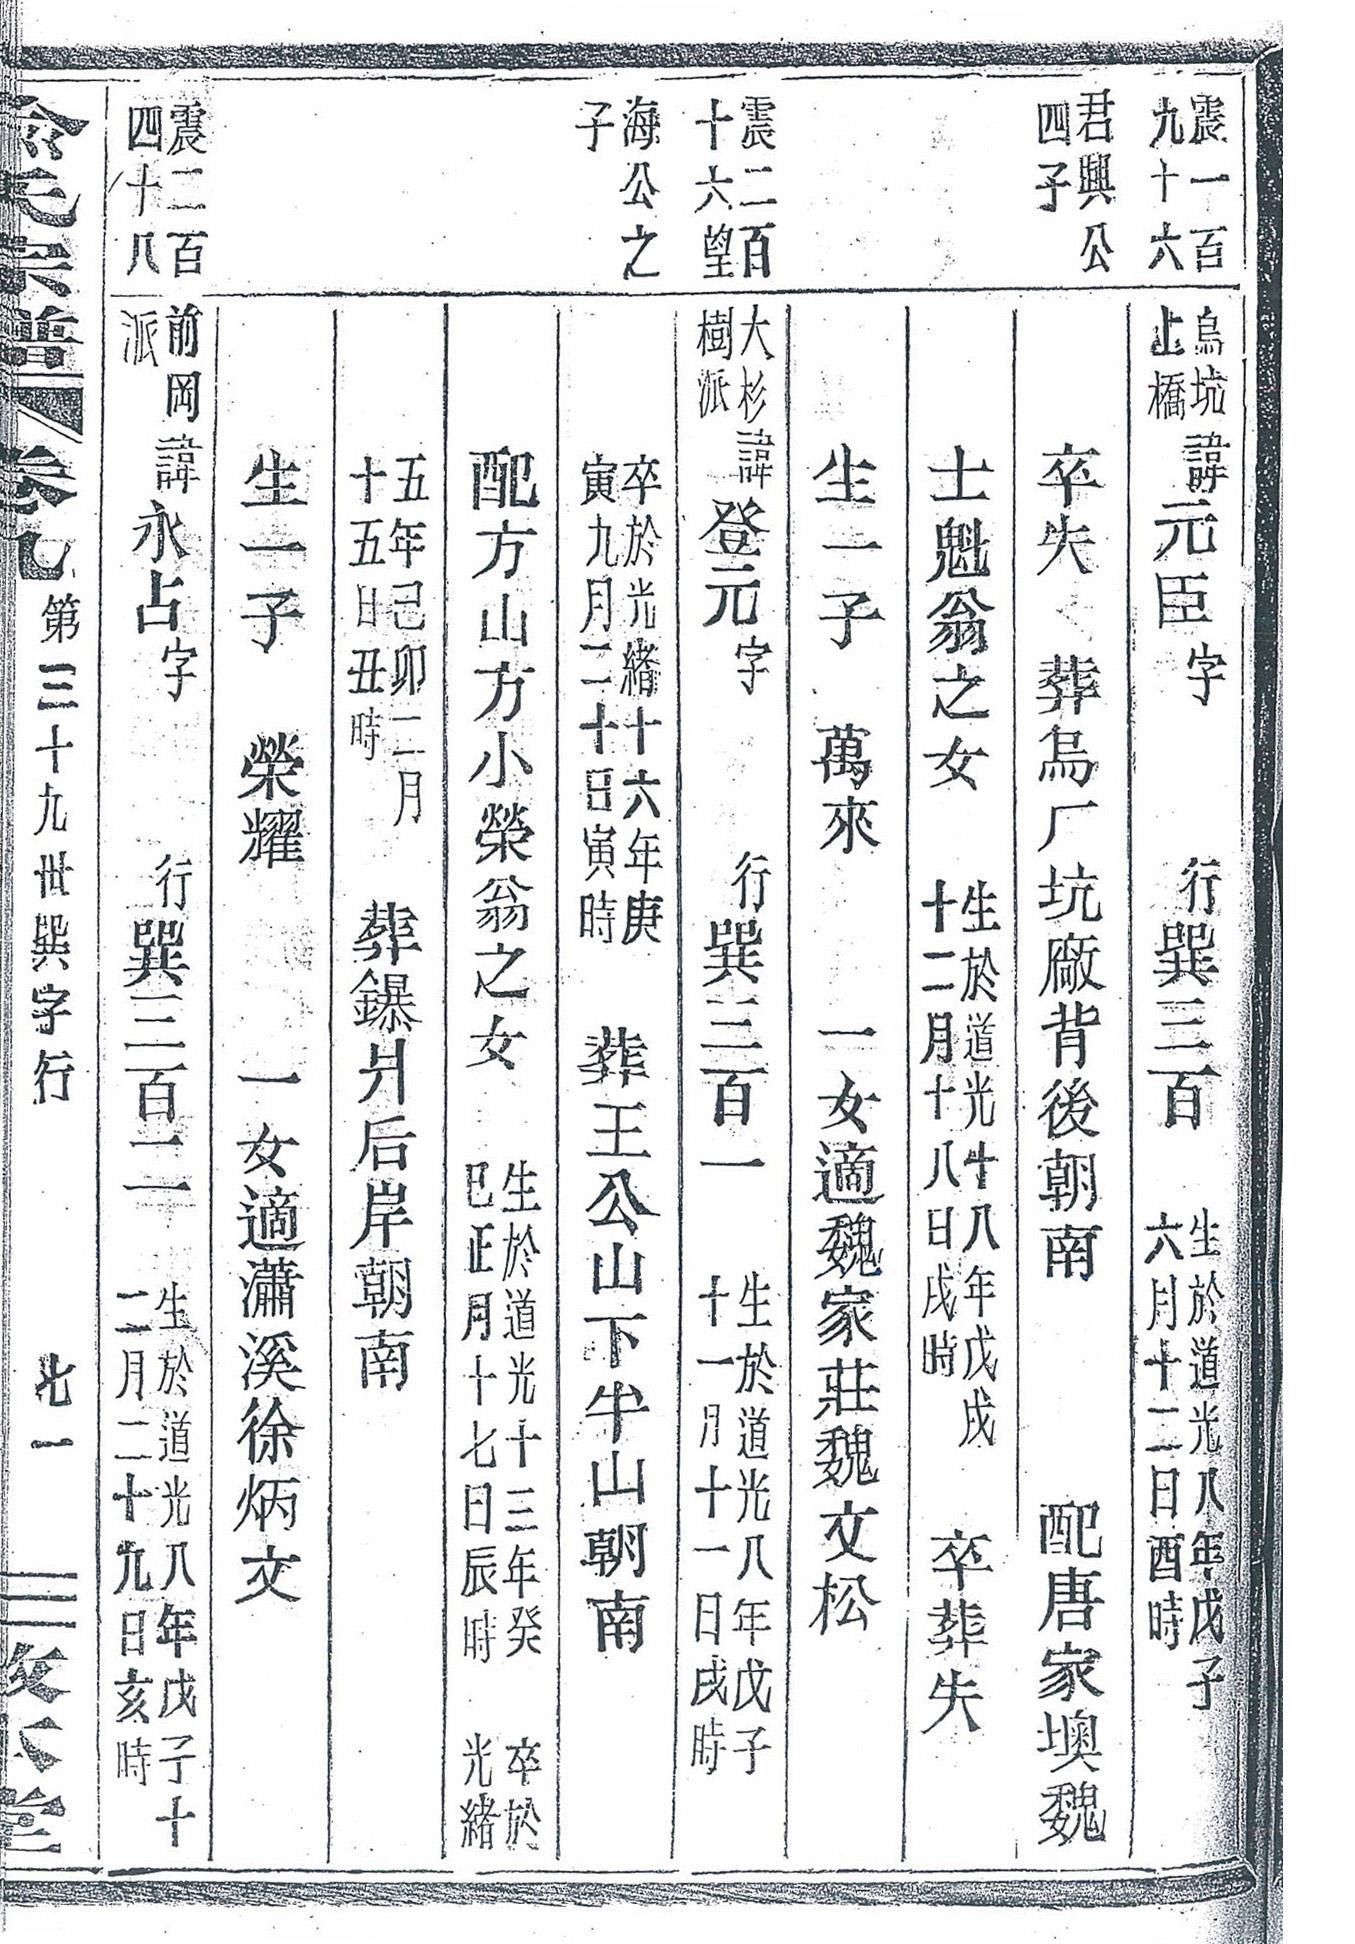 震一百
九十六
烏坑
上橋
諱元臣字 行巽三百
生於道光八年戊子
六月十二日酉時
君興公
四子
卒失 葬烏厂坑廠背後朝南 配唐家墺魏
士魁翁之女
生於道光十八年戊戌
十二月十八日戌時
卒葬失
生一子 萬來 一女適魏家莊魏文松
震二百
十六望
大杉
樹派
諱登元字 行巽三百一
生於道光八年戊子
十一月十一日戌時
海公之
子
卒於光緒十六年庚
寅九月二十日寅時
葬王公山下半山朝南
配方山方小榮翁之女
生於道光十三年癸
巳正月十七日辰時
卒於
光緒
五年己卯二月
十五日丑時
葬鑤爿后岸朝南
生一子 榮耀 一女適瀟溪徐炳文
震二百
四十八
前岡
派
諱永占字 行巽三百二
生於道光八年戊子十
二月二十九日亥時
氏宗譜 卷九 第三十九世巽字行 七一 堂